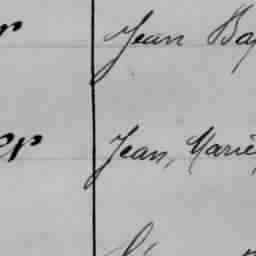 r Jean Bap
er Jean, Marie,